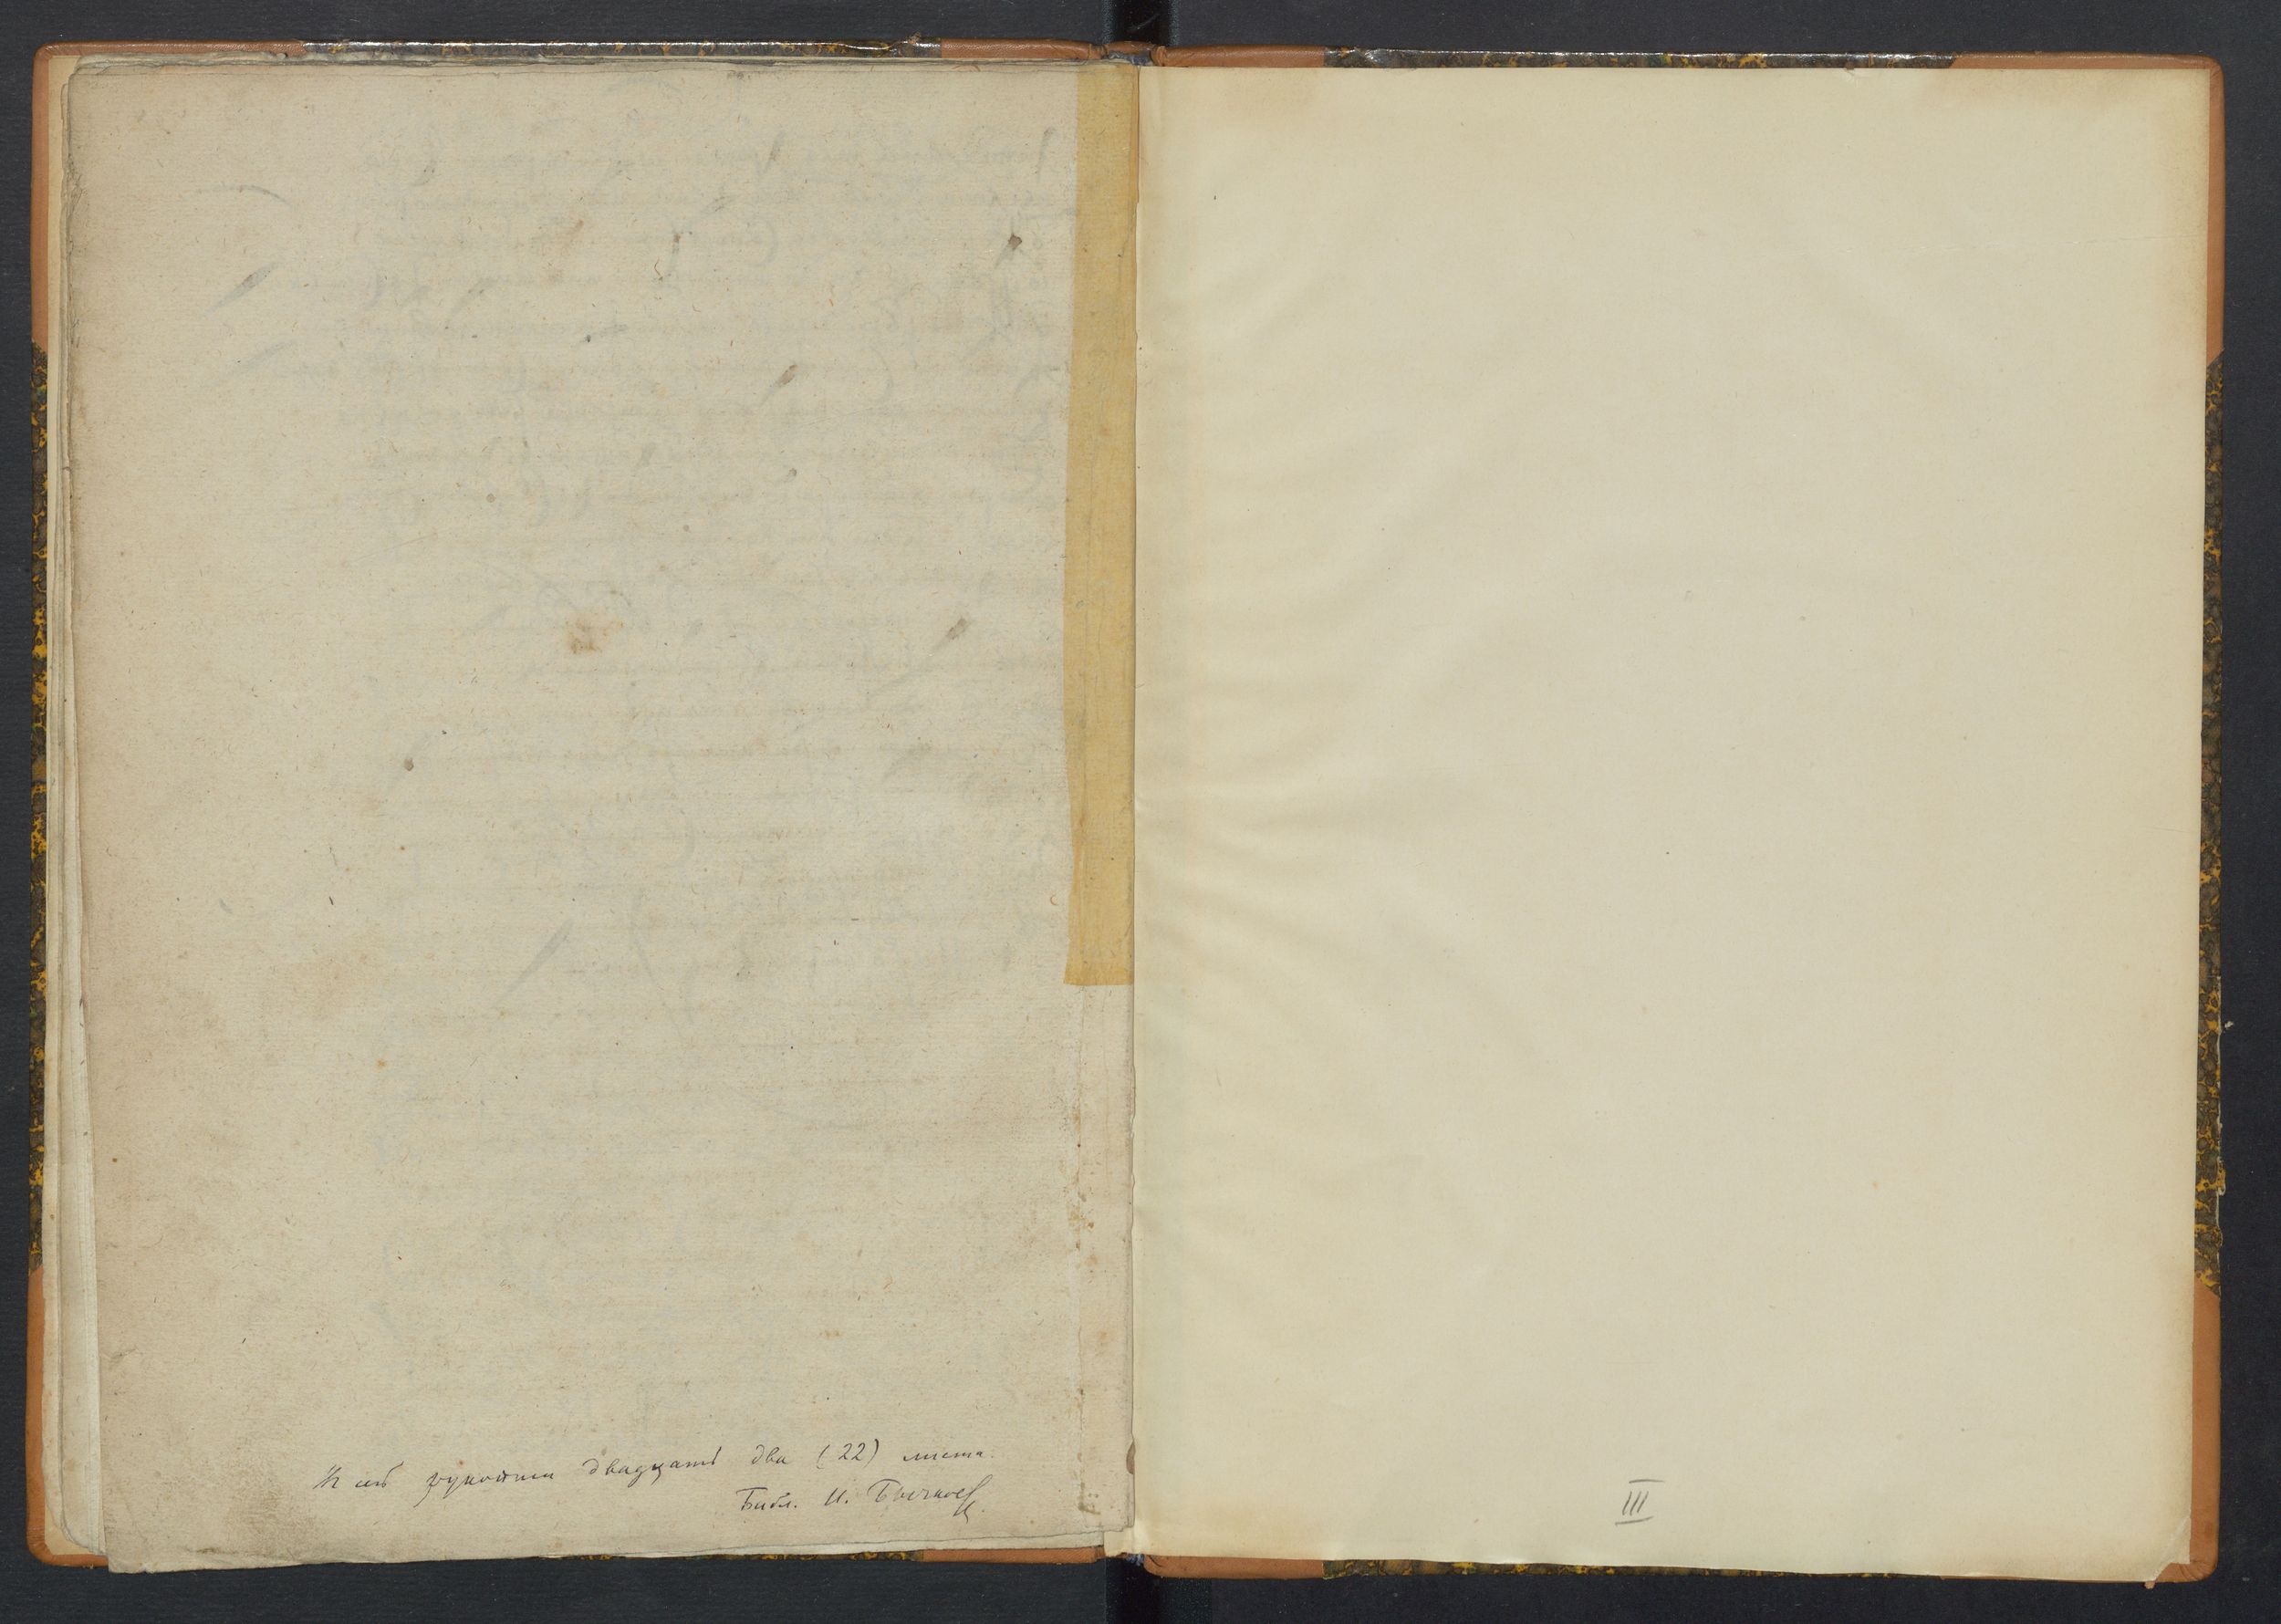 Въ сей рукописи двадцать два (22) листа.
Библ. И. Бычковъ.
III